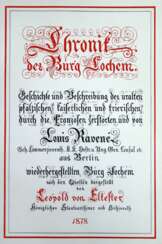 Chronik
der Burg Cochem.
Geschichte und Beschreibung der uralten
pfalzgräflichen kaiserlichen und trierischen
durch die Franzosen zerstörten und von
Louis Ravené
Geh. Commerzienrath
aus Berlin
wiederhergestellten Burg Cochem
nach den Quellen dargestellt
von
Leopold von Eltester
Königlicher Staatsarchivar und Archivrath
1878.